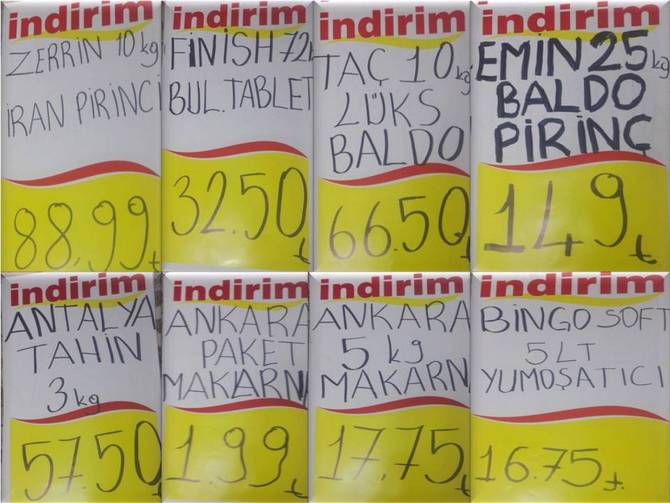 indirim
ZERRİN 10 kg
İRAN PİRİNCİ
88,99 ₺
indirim
FİNİSH 72
BUL. TABLET
32.50 ₺
indirim
TAÇ 10 kg
LÜKS
BALDO
66.50 ₺
indirim
EMİN 25 kg
BALDO
PİRİNÇ
149 ₺
indirim
ANTALYA
TAHİN
3 kg
57.50
indirim
ANKARA
PAKET
MAKARN
1.99 ₺
indirim
ANKARA
5 kg
MAKARN
17,75 ₺
indirim
BİNGO SOFT
5 LT
YUMOŞATICI
16.75 ₺